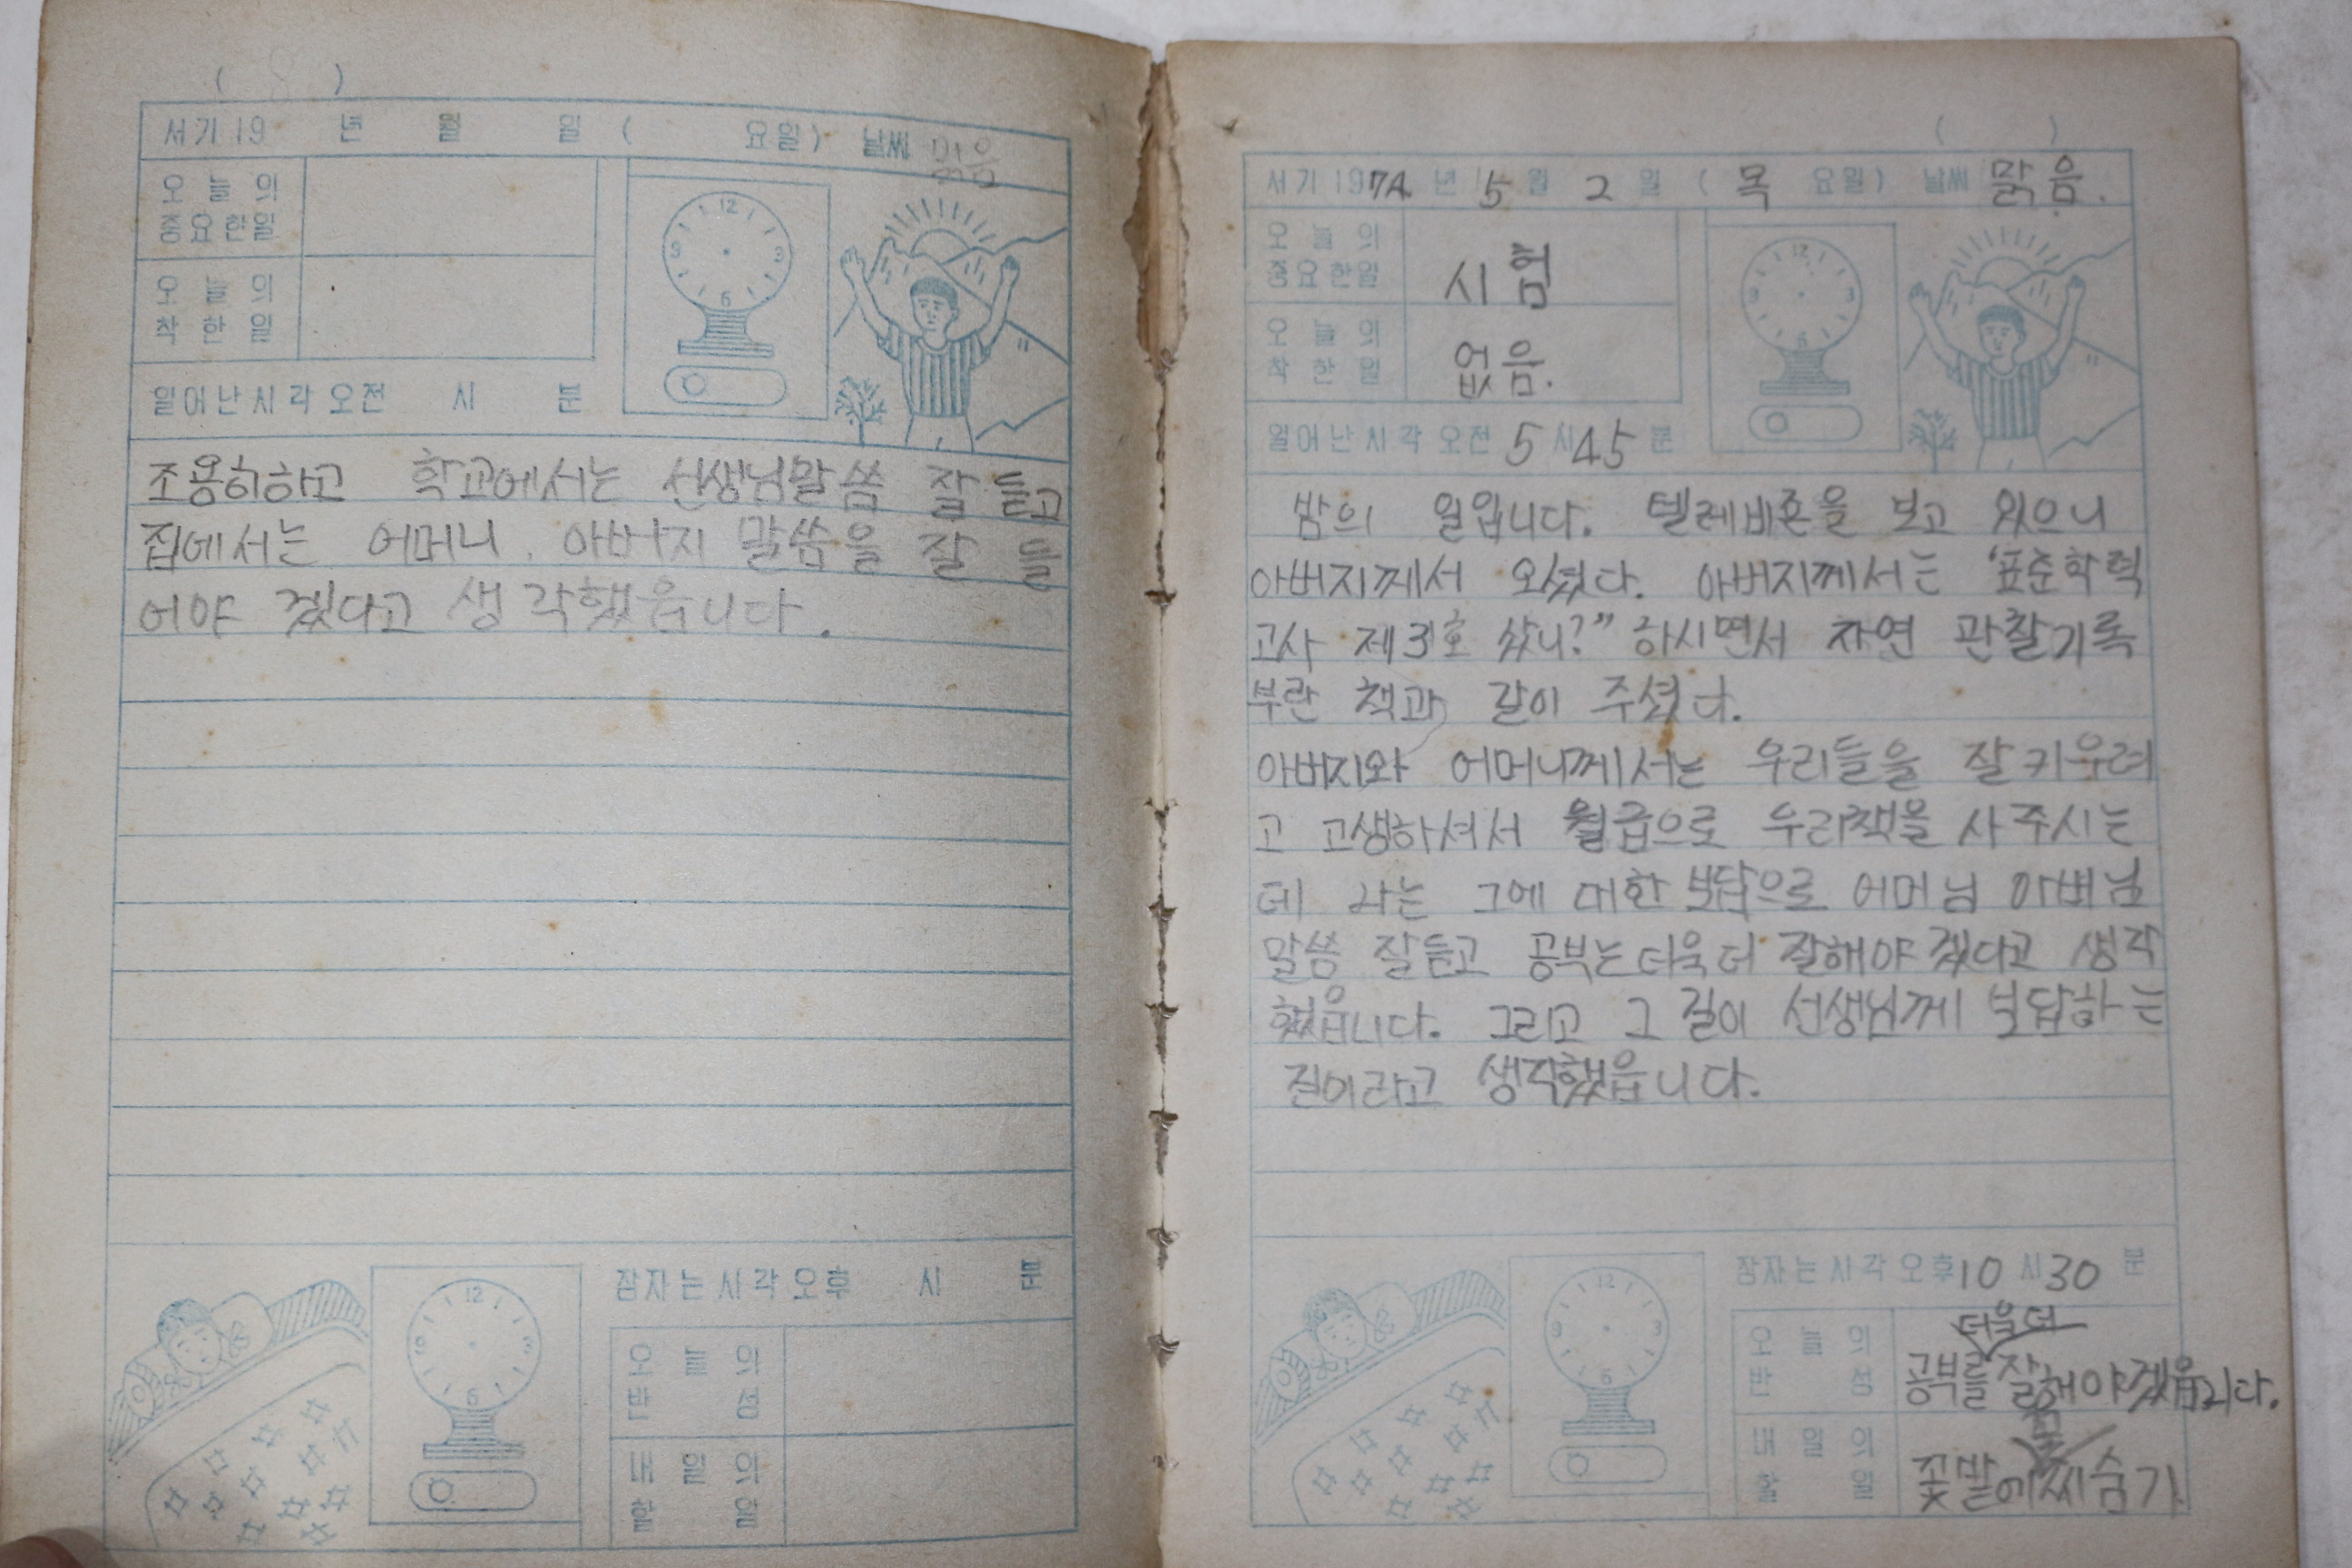 ( 8 )
서기 19 년 월 일 ( 요일) 날씨 맑음
오늘의
중요한일
오늘의
착한일
일어난시각 오전 시 분
조용히하고 학교에서는 선생님말씀 잘 듣고
집에서는 어머니, 아버지 말씀을 잘 들
어야 겠다고 생각했읍니다.
잠자는시각 오후 시 분
오늘의
반성
내일의
할일
( )
서기 1974년 5월 2일 (목요일) 날씨 맑음.
오늘의
중요한일 시험
오늘의
착한일 없음.
일어난시각 오전 5시 45분
밤의 일입니다. 텔레비죤을 보고 있으니
아버지께서 오셨다. 아버지께서는 "표준학력
고사 제3호 샀니?" 하시면서 자연 관찰기록
부란 책과 같이 주셨다.
아버지와 어머니께서는 우리들을 잘 키우려
고 고생하셔서 월급으로 우리책을 사 주시는
데 나는 그에 대한 보답으로 어머님 아버님
말씀 잘듣고 공부는 더욱 더 잘해야 겠다고 생각
했읍니다. 그리고 그 길이 선생님께 보답하는
길이라고 생각했읍니다.
잠자는시각 오후 10시 30분
더욱더
오늘의
반성 공부를 잘해야겠읍니다.
내일의
할일 꽃밭에 씨 숨기
12 3 6 9
12 3 6 9
12 3 6 9
12 3 6 9